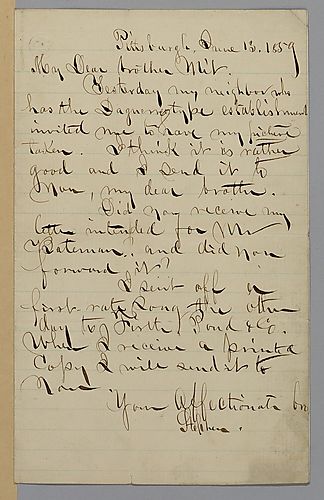 Pittsburgh, June 13. 1859
My Dear brother Mit.
Yesterday my neighbor who
has the Daguerreotype establishment
invited me to have my picture
taken. I think it is rather
good and I send it to
you, my dear brother.
Did you receive my
letter intended for Mr
Bateman, and did you
forward it?
I sent off a
first rate song the other
day to Firth, Pond & Co.
When I receive a printed
Copy I will send it to
you.
Your Affectionate bro
Stephen.